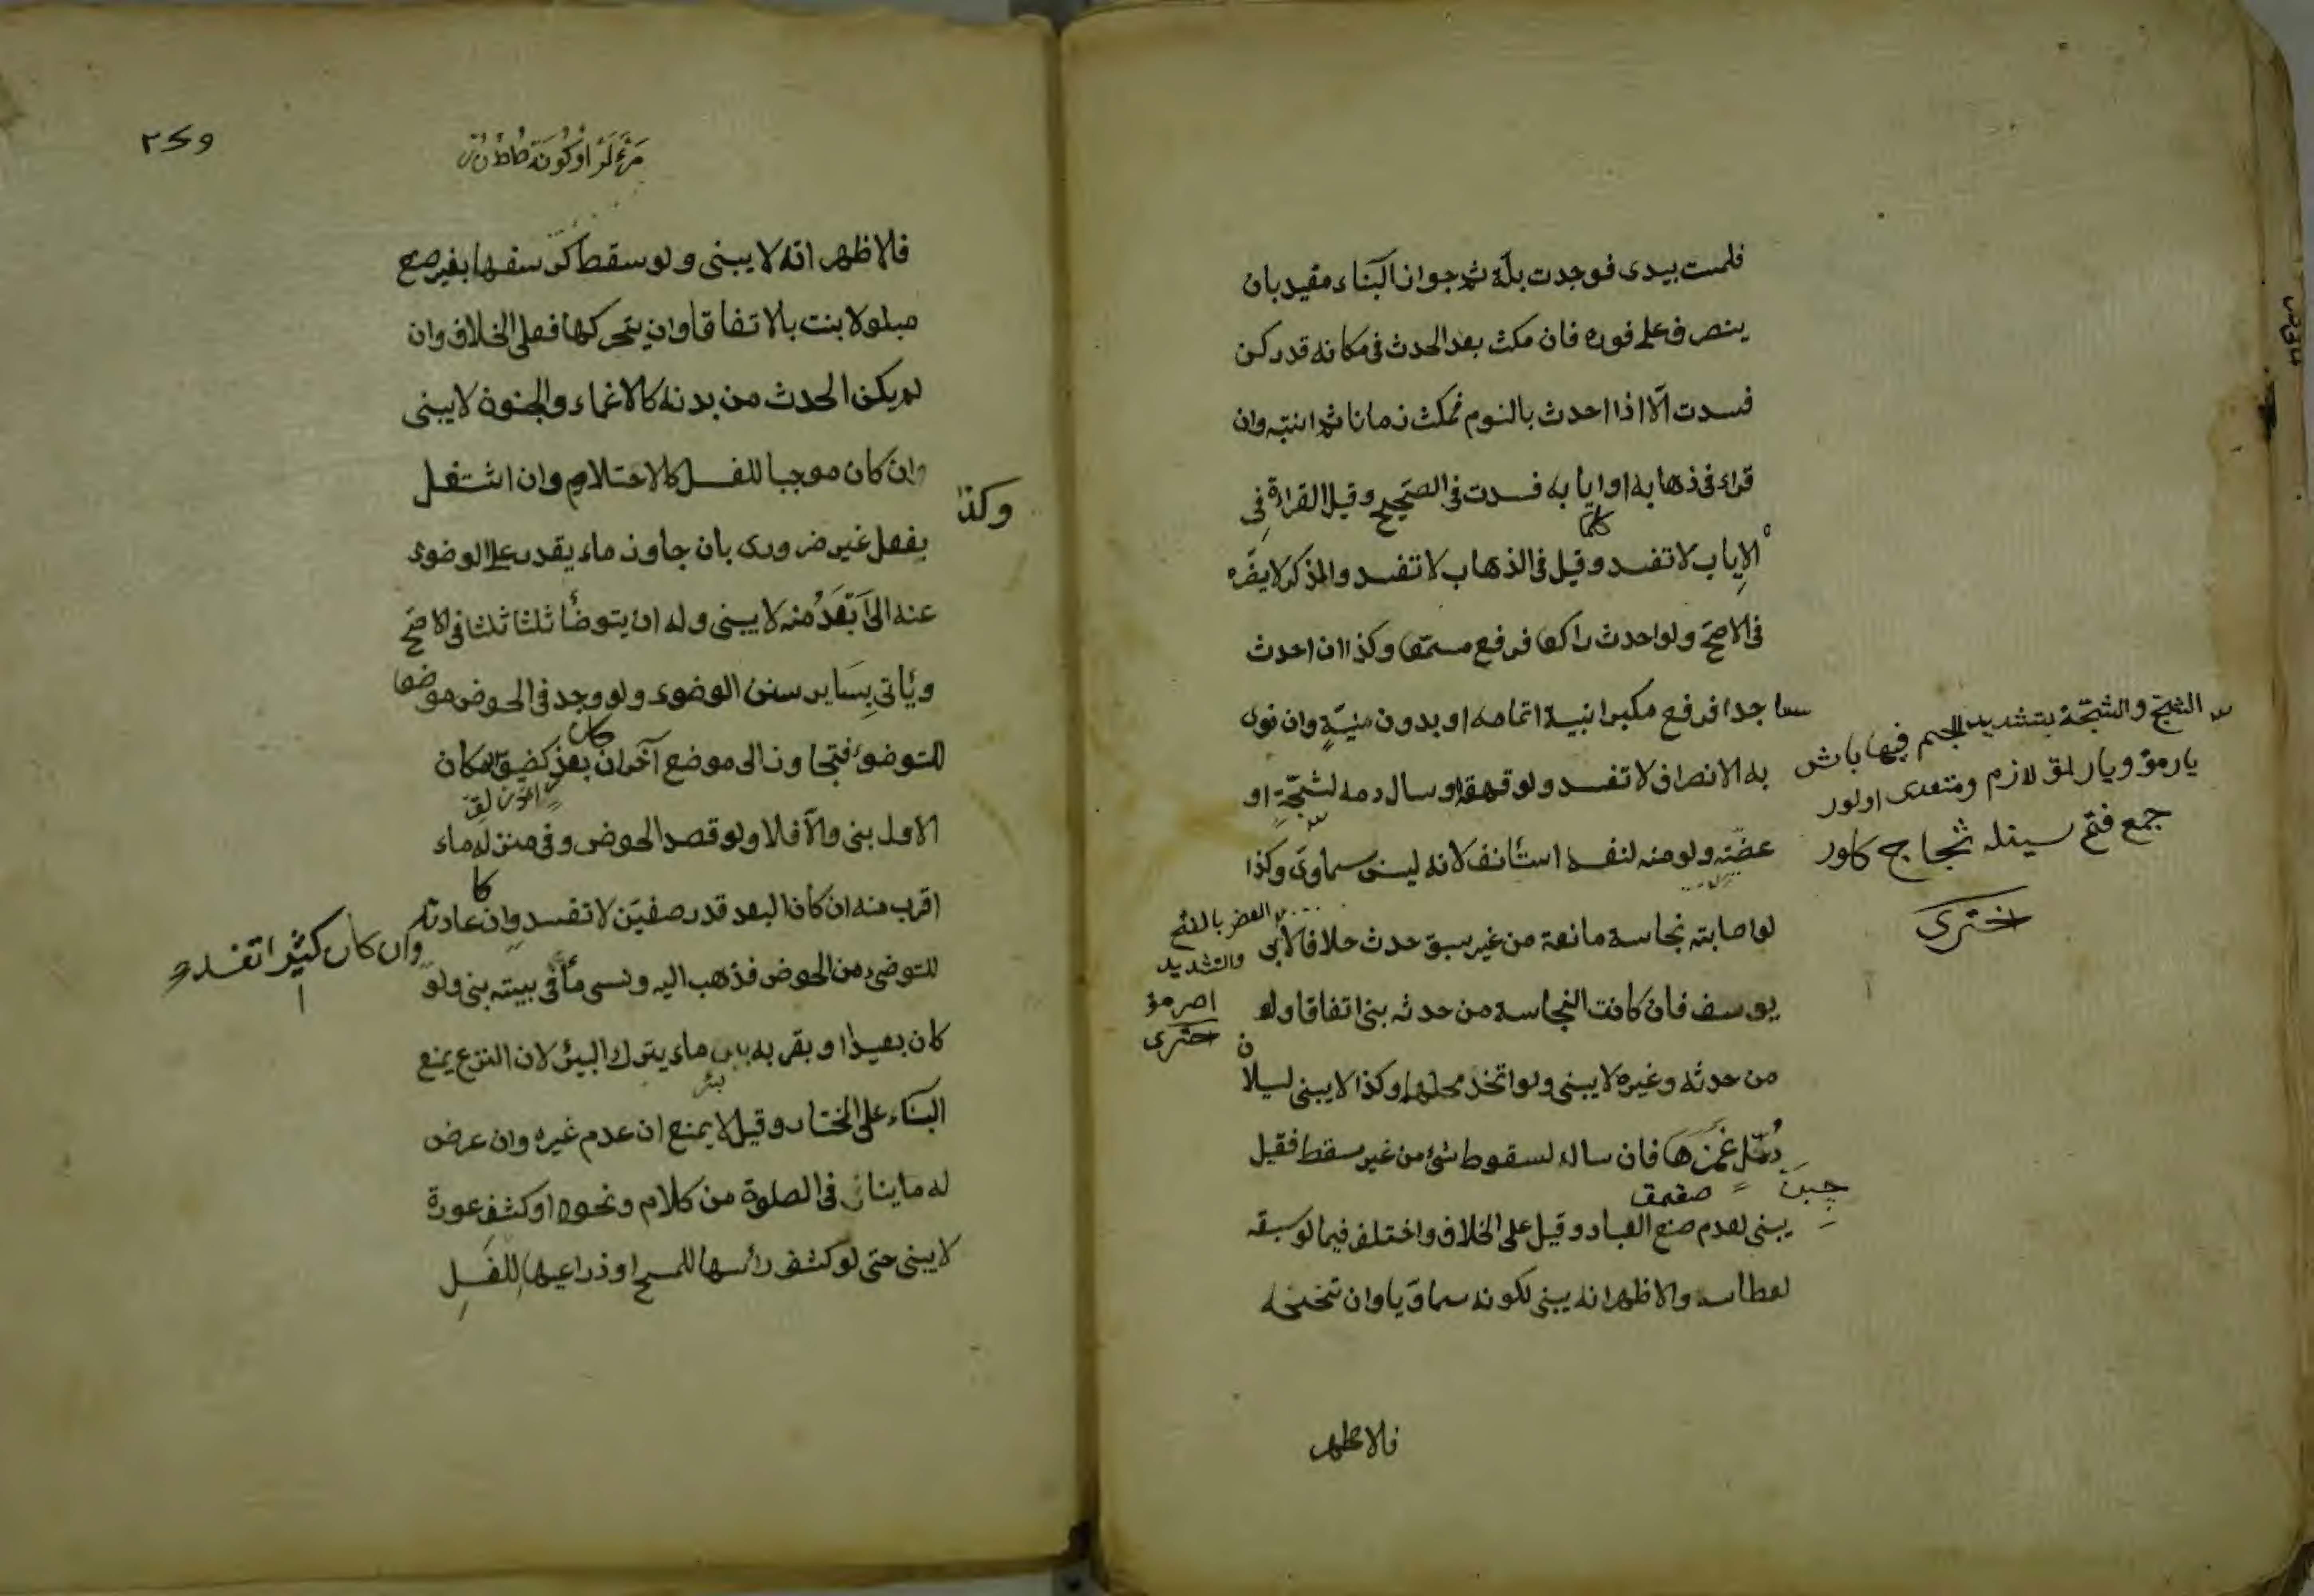 فلمست بيدى فوجدت بلة ثم جواز البناء مقيد بان
ينصرف على فوره فان مكث بعد الحدث فى مكانه قدر ركن
فسدت الّا اذا احدث بالنوم فمكث زمانا ثم انتبه وان
قراء فى ذهابه او ايابه فسدت فى الصحيح وقيل القراءة فى
الإياب لا تفسد وقيل فى الذهاب لا تفسد والذكر لا يضره
فى الاصحّ ولو احدث راكعا فرفع مسمعا وكذا ان احدث
ساجدا فرفع مكبرا بنية اتمامه او بدون نيّةٍ وان نوى
به الانصراف لا تفسد ولو قهقه او سال دمه لشجّةٍ او
عضّه ولو منه لنفسه استأنف لانه ليس سماوىّ وكذا
لو اصابته نجاسة مانعة من غير سبق حدث خلافا لابى
يوسف فان كانت النجاسة من حدثه بنى اتفاقا ولو
من حدثه وغيره لا يبنى ولو اتخذ محلهما وكذا لا يبنى لسيلان
دُمّل غَمَزَها فان سال لسقوط شئ من غير مسقط فقيل
يبنى لعدم صنع العباد وقيل على الخلاف واختلف فيما لو سبقه
لعطاسه والاظهر انه يبنى لكونه سماوّيا وان تنحنحه
فالاظهر
الشج والشجّة بتشديد الجيم فيها باش
يارمق ويارلمق لازم ومتعدى اولور
جمع فتح سينله شجاج كلور
اخترى
العض بالفتح
والتشديد
اصرمق
اخترى
چبن
صقمق
٢٤٩
فالاظهر انه لا يبنى ولو سقط كرسفها بغير صنع
مبلولا بنت بالاتفاق وان بتحركها فعلى الخلاف وان
لم يكن الحدث من بدنه كالاغماء والجنون لا يبنى
وكذا
وان كان موجبا للغسل كالاحتلام وان اشتغل
بفعل غير ضرورى بان جاوز ماء يقدر على الوضوء
عنه الى ابعَدُ منه لا يبنى وله ان يتوضّأ ثلثا ثلثا فى الاصحّ
ويأتى بِسَاير سنن الوضوء ولو وجد فى الحوض موضعا
للتوضوء فتجاوز الى موضع آخر ان بعذر كضيق المكان
الاول بنى والّا فلا ولو قصد الحوض وفى منزله ماء
اقرب منه ان كان البعد قدر صفيّن لا تفسد وان عادته
وان كان كثيرا تفسد
للتوضى من الحوض فذهب اليه ونسى ماء فى بيته بنى ولو
كان بعيدا وبقربه بئر ماء يترك البئر لان النزع يمنع
بئر
البناء على المختار وقيل لا يمنع ان عدم غيره وان عرض
له ما ينافى الصلوة من كلام ونحوه او كشف عورة
لا يبنى حتى لو كشف رأسها للمسح او ذراعيها للغَسلِ